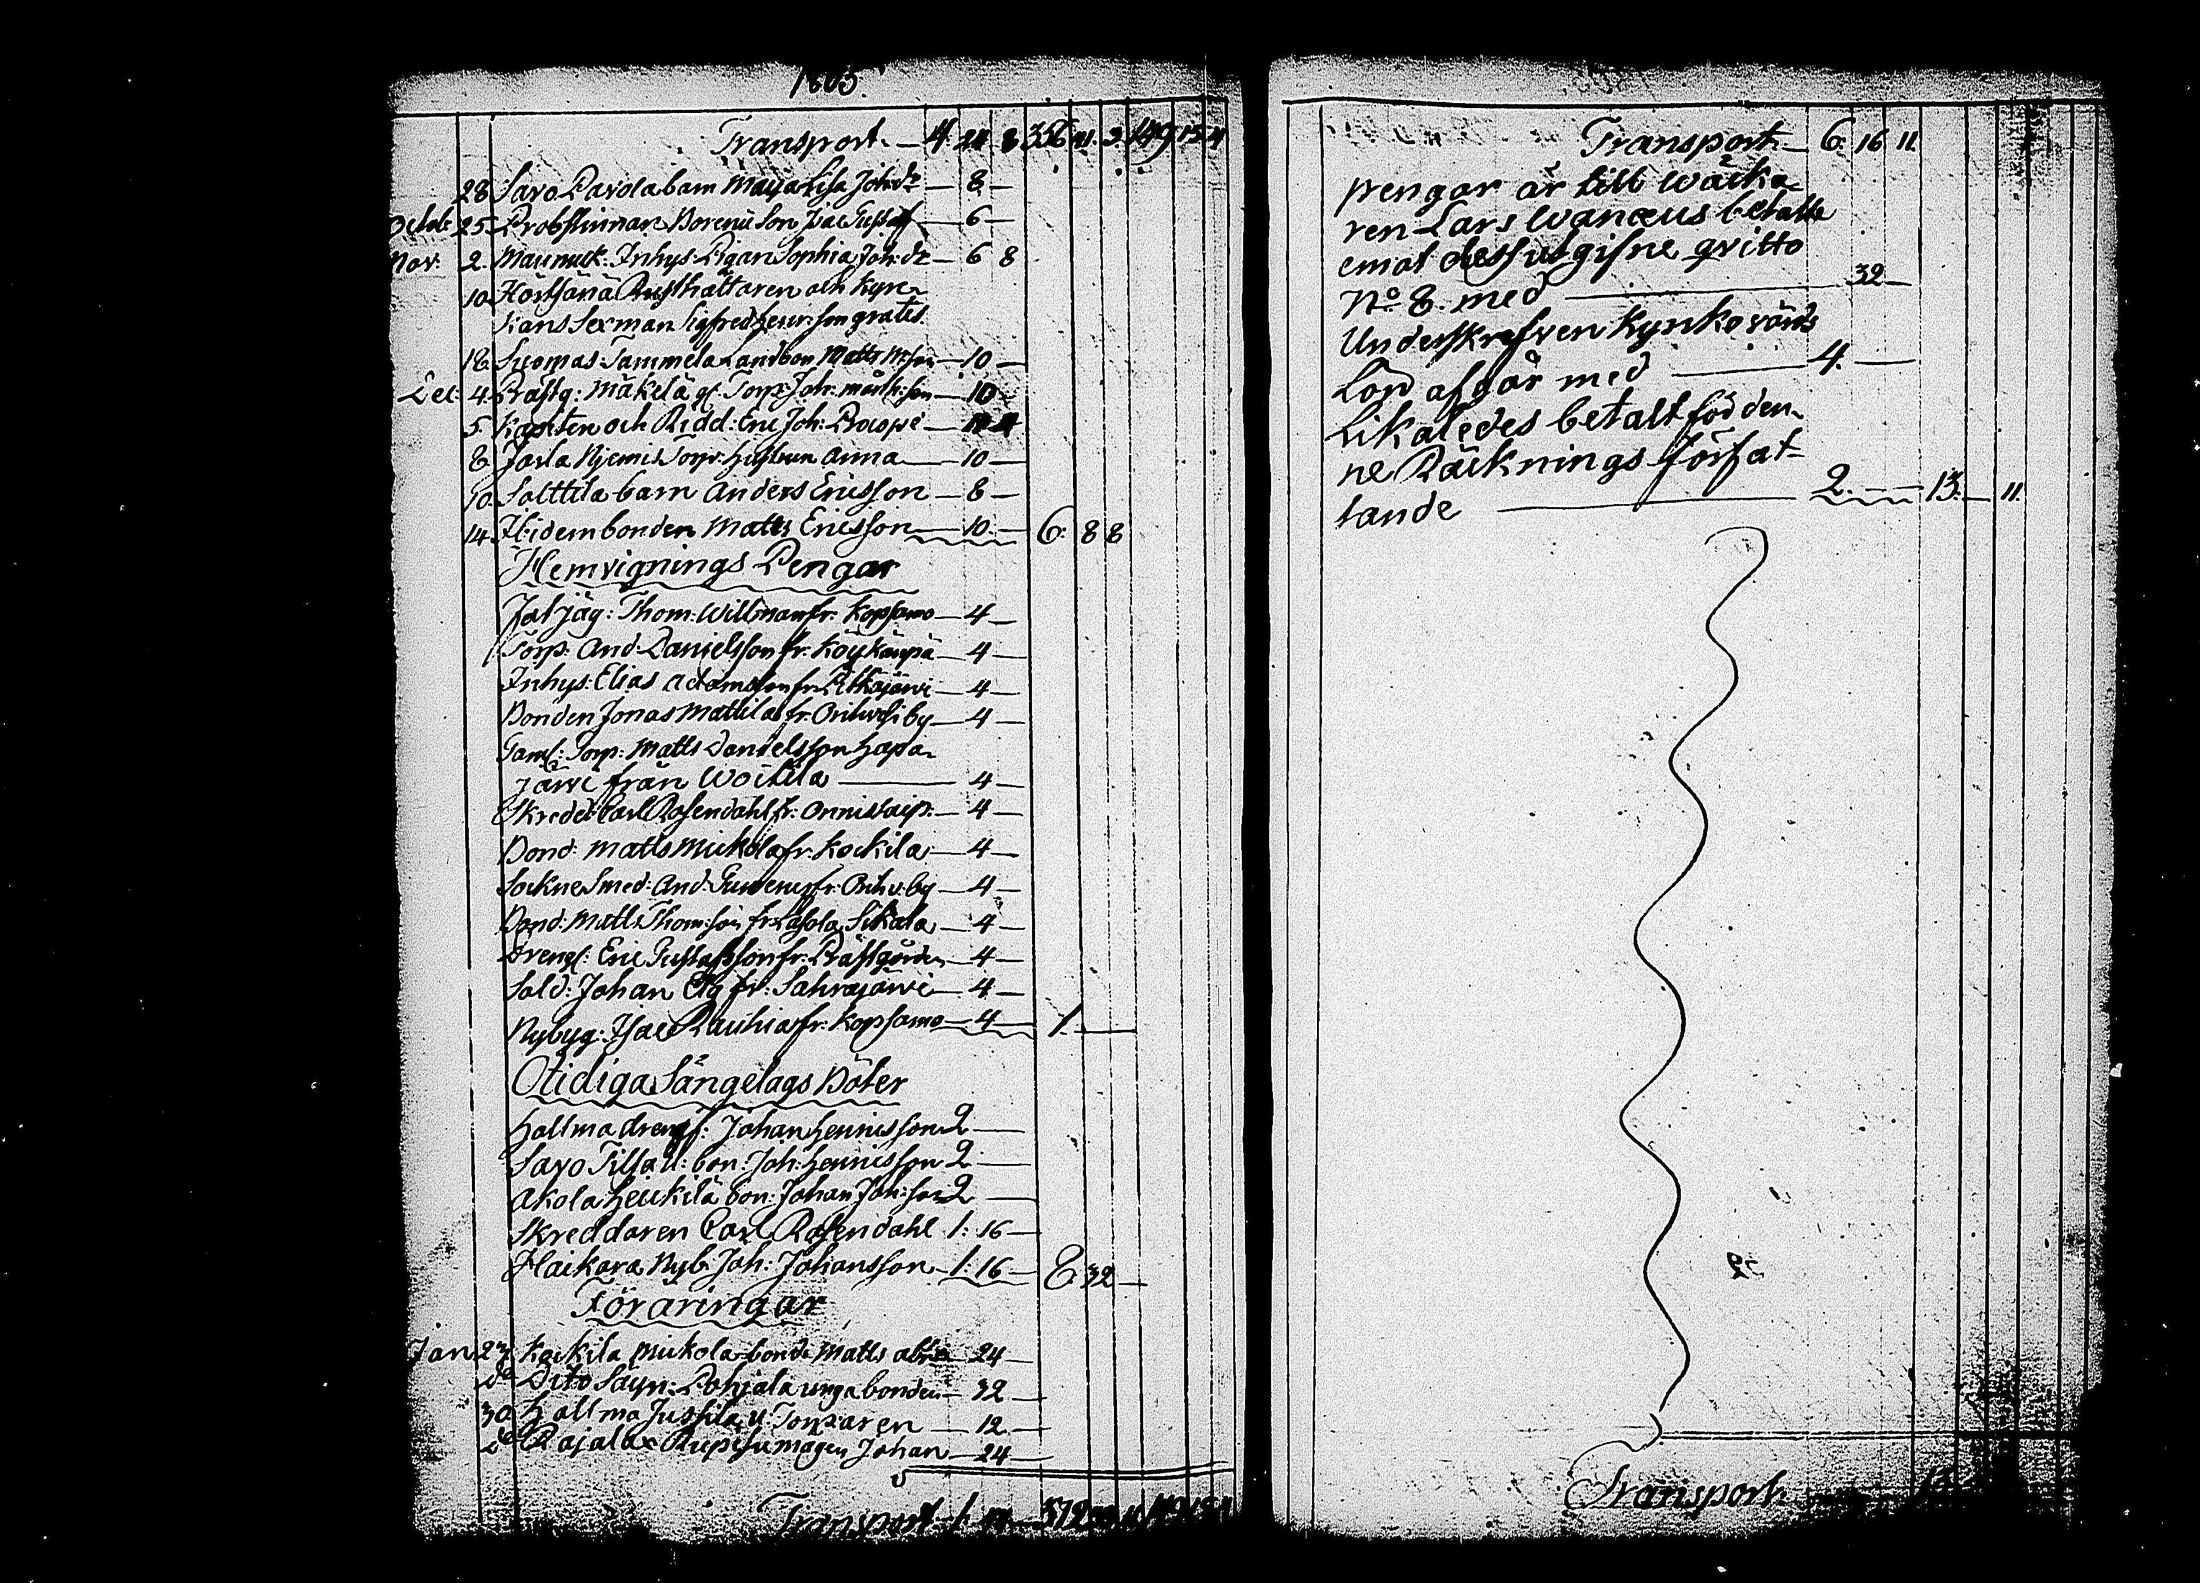 1805.
Transport — 4. 24 8 356 41. 3. 149 15 4
28 Savo Pavola barn Maya Lisa Joh:dr — 8 —
Octob: 25 Probstinnan Borenii Son Isac Gustaf — 6 —
Nov: 2. Maunuck: Inhys Pigan Sophia Joh:dr — 6 8
10 och Kyrc-
kans Sexman Sigfred grates.
18 Suomas: Tammela Landbon Matts M:son — 10 —
Dec: 4. Prästg: Mäkelä gl. Torp: Joh: Matts:son — 10 —
5 och Ridd: Eric Joh:
8 Jarla Njemis Torp: hustrun Anna — 10 —
10 Salttila barn Anders Ericsson — 8 —
14 Hidem bonden Matts Ericsson — 10. — 6: 8 8
Hemvignings Pengar
Thom: Willman fr: Kopsamo — 4 —
Torp: And: Danielsson fr: Köykänpä — 4 —
Inhys: Elias Adamsson fr: Pitkäjärvi — 4 —
Bonden Jonas Mattila fr: Orihvesi by — 4 —
Gaml: Torp: Matts Danielsson Hapa-
järvi från Woitila — 4 —
Skredd: Carl Rosendahl fr: Onnistaip: — 4 —
Bond: Matts Mickola fr: Kockila — 4 —
Sockne Smed: And: fr: Orih: by — 4 —
Bond: Matts Thom:son fr: Sikala — 4 —
Dreng: Eric Gustafsson fr: Prästgården — 4 —
Sold: Johan Elg fr: Sahrajärvi — 4 —
Nybyg: Isac Rauhia fr: Kopsamo — 4 — 1. —
Otidiga Sängelags Böter
Hallma dreng: Johan Henricsson 2 —
Savo Tilsa U: bon: Joh: Henricsson 2. —
Akola Heickilä bon: Johan Joh:son 2 —
Skreddaren Carl Rosendahl 1: 16 —
Haikara Nyb: Joh: Johansson — 1: 16 — 8 32 —
Föraringar
Jan 23 Kockila Mickola bonde Matts — 24 —
do Dito Sayn: Pohjala unga bonden — 32 —
30 Hallma Jussila U: Torparen — 12 —
do Rajala Johan — 24 —
Transport 1. 372
Transport — 6. 16 11
pengar är till wäcka-
ren Lars Wanæus betalte
emot dess utgifne qvitto
No 8. med — 32 —
Underskrefven Kyrko värds
Lön afgår med — 4. —
Likaledes betalt för den-
ne Räcknings författ-
tande — 2. — 13. — 11.
Transport 13